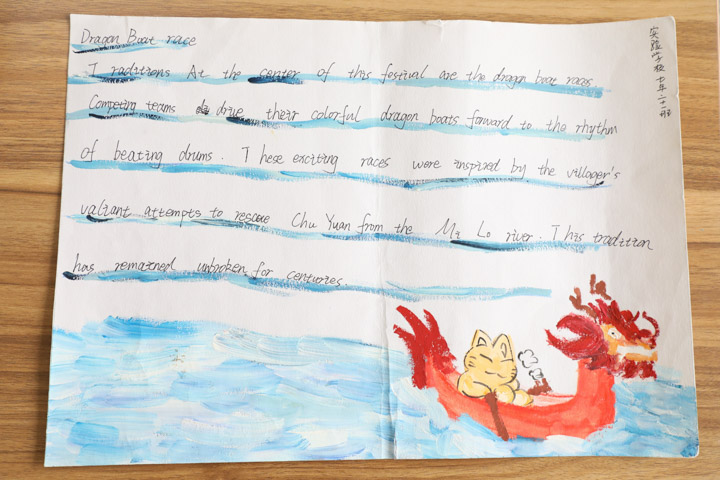 Dragon Boat race
Traditions At the center of this fostival are the dragon boat races
Competing teams drive their colorful dragon boats forward to the rhythm
of beating drums. These exciting races were inspired by the villager's
valiant attempts to rescue Chu Yuan from the Mi Lo river. This tradition
has remained unbroken for centuries.
实验学校七年二十一班